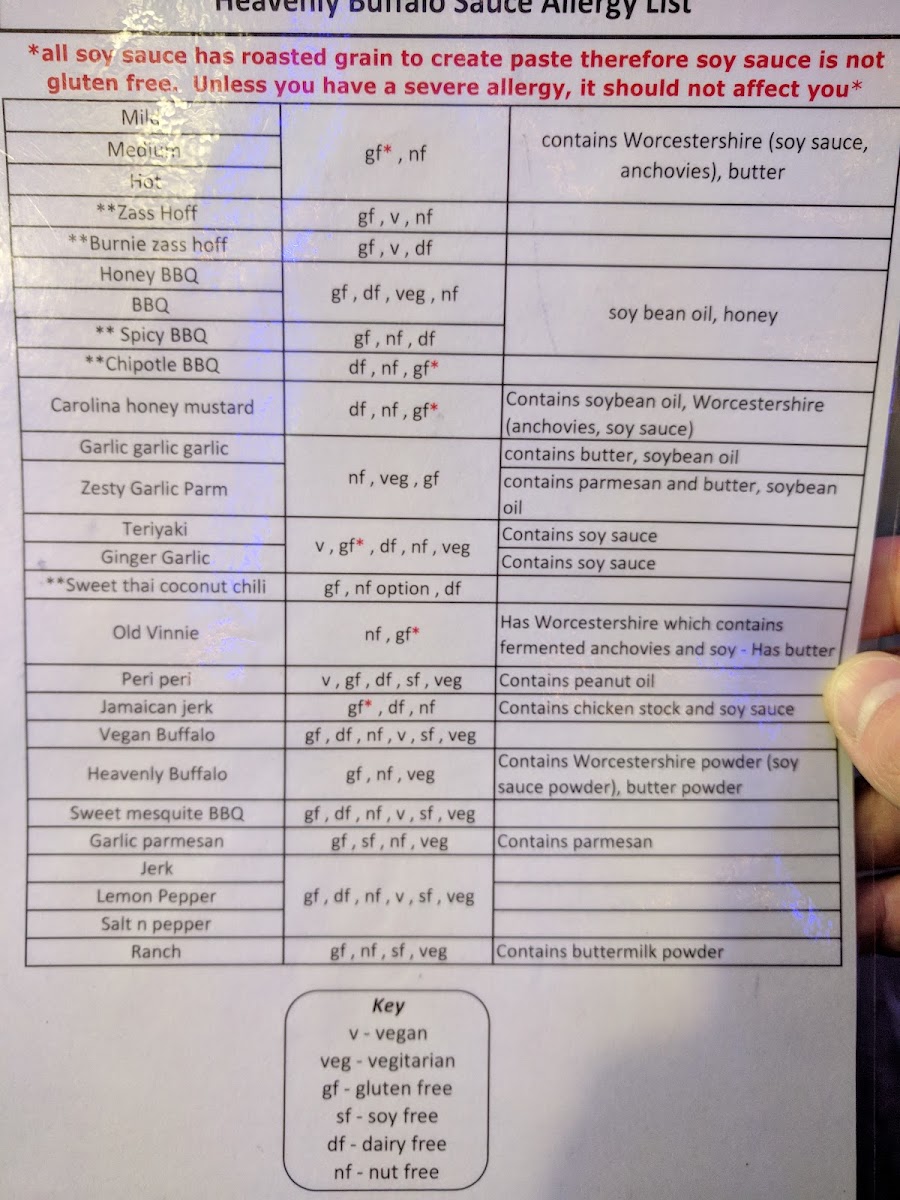 Heavenly Buffalo Sauce Allergy List
*all soy sauce has roasted grain to create paste therefore soy sauce is not
gluten free. Unless you have a severe allergy, it should not affect you*
Mild
Medium
Hot
gf* , nf
contains Worcestershire (soy sauce,
anchovies), butter
**Zass Hoff
gf , v , nf
**Burnie zass hoff
gf , v , df
Honey BBQ
BBQ
gf , df , veg , nf
** Spicy BBQ
gf , nf , df
soy bean oil, honey
**Chipotle BBQ
df , nf , gf*
Carolina honey mustard
df , nf , gf*
Contains soybean oil, Worcestershire
(anchovies, soy sauce)
Garlic garlic garlic
Zesty Garlic Parm
nf , veg , gf
contains butter, soybean oil
contains parmesan and butter, soybean
oil
Teriyaki
Ginger Garlic
v , gf* , df , nf , veg
Contains soy sauce
Contains soy sauce
**Sweet thai coconut chili
gf , nf option , df
Old Vinnie
nf , gf*
Has Worcestershire which contains
fermented anchovies and soy - Has butter
Peri peri
v , gf , df , sf , veg
Contains peanut oil
Jamaican jerk
gf* , df , nf
Contains chicken stock and soy sauce
Vegan Buffalo
gf , df , nf , v , sf , veg
Heavenly Buffalo
gf , nf , veg
Contains Worcestershire powder (soy
sauce powder), butter powder
Sweet mesquite BBQ
gf , df , nf , v , sf , veg
Garlic parmesan
gf , sf , nf , veg
Contains parmesan
Jerk
Lemon Pepper
Salt n pepper
gf , df , nf , v , sf , veg
Ranch
gf , nf , sf , veg
Contains buttermilk powder
Key
v - vegan
veg - vegitarian
gf - gluten free
sf - soy free
df - dairy free
nf - nut free